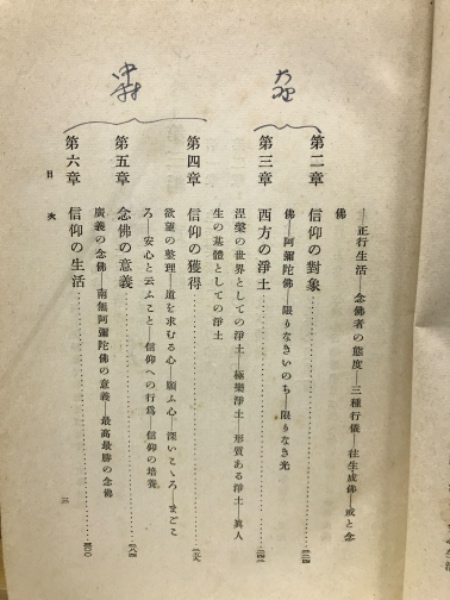 ――正行生活――念佛者の態度――三種行儀――往生成佛――戒と念
佛
第二章 信仰の對象
佛――阿彌陀佛――限りなきいのち――限りなき光
第三章 西方の淨土
涅槃の世界としての淨土――極樂淨土――形質ある淨土――眞人
生の基體としての淨土
第四章 信仰の獲得
欲望の整理――道を求むる心――願ふ心――深いこゝろ――まごこ
ろ――安心と云ふこと――信仰への行爲――信仰の培養
第五章 念佛の意義
廣義の念佛――南無阿彌陀佛の意義――最高最勝の念佛
第六章 信仰の生活
目次
中村